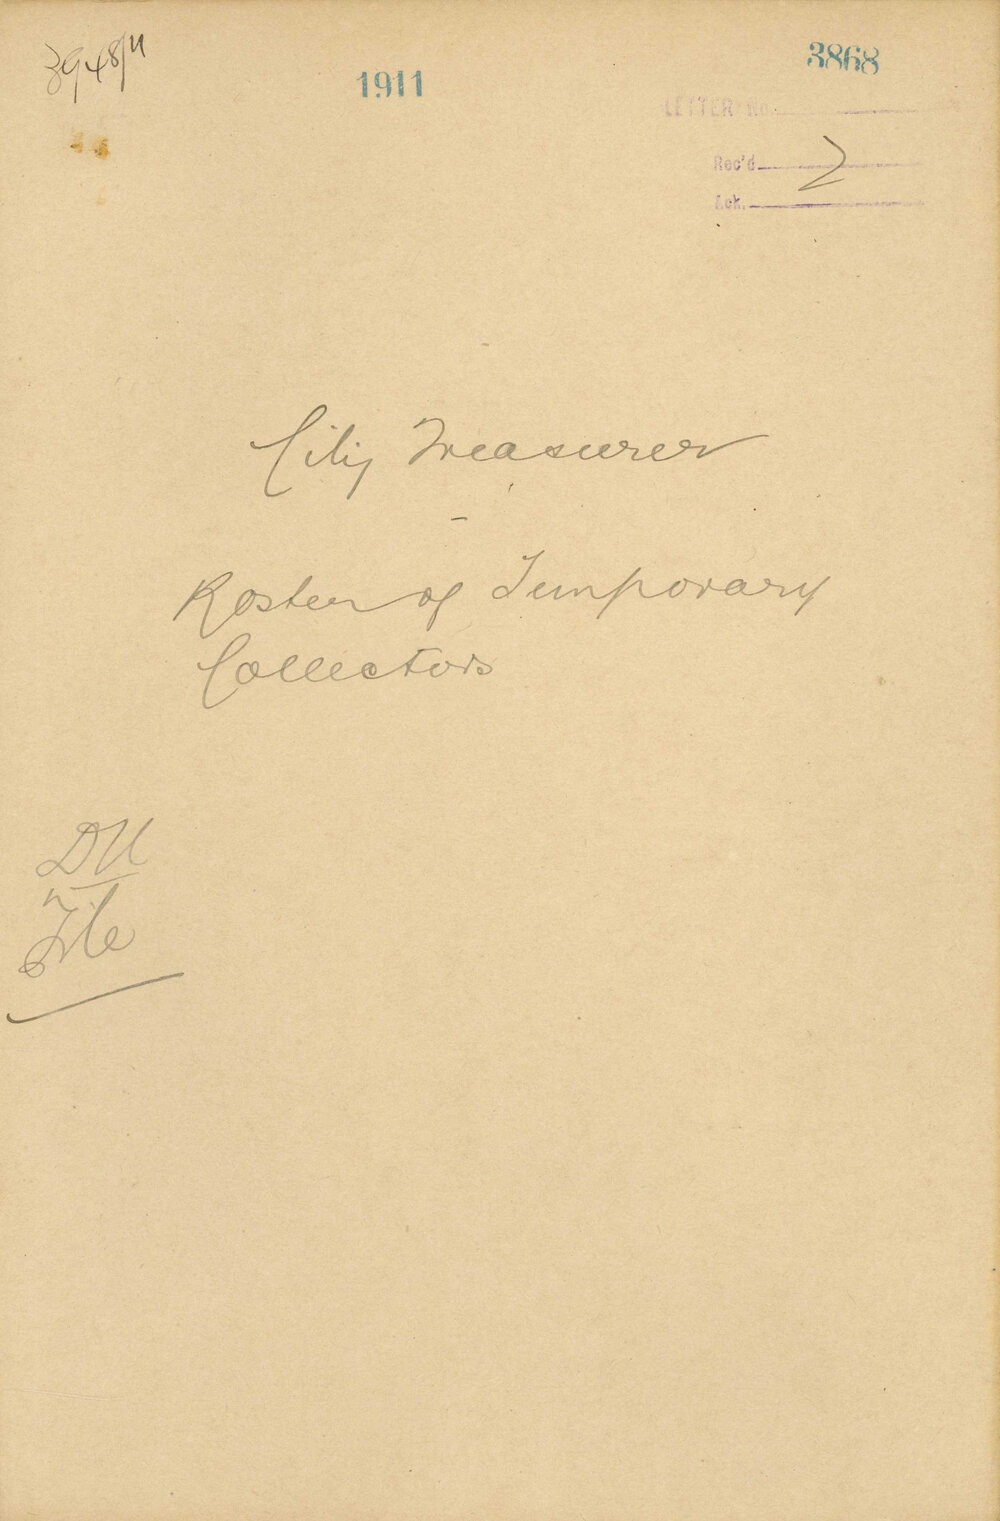 3948/11
1911
3868
LETTER No.
Rec'd 2
Ack.
City Treasurer
-
Roster of Temporary
Collectors
File